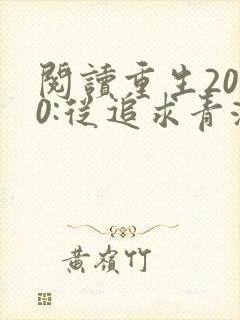 閱讀重生20
0:從追求青
黃嶺竹